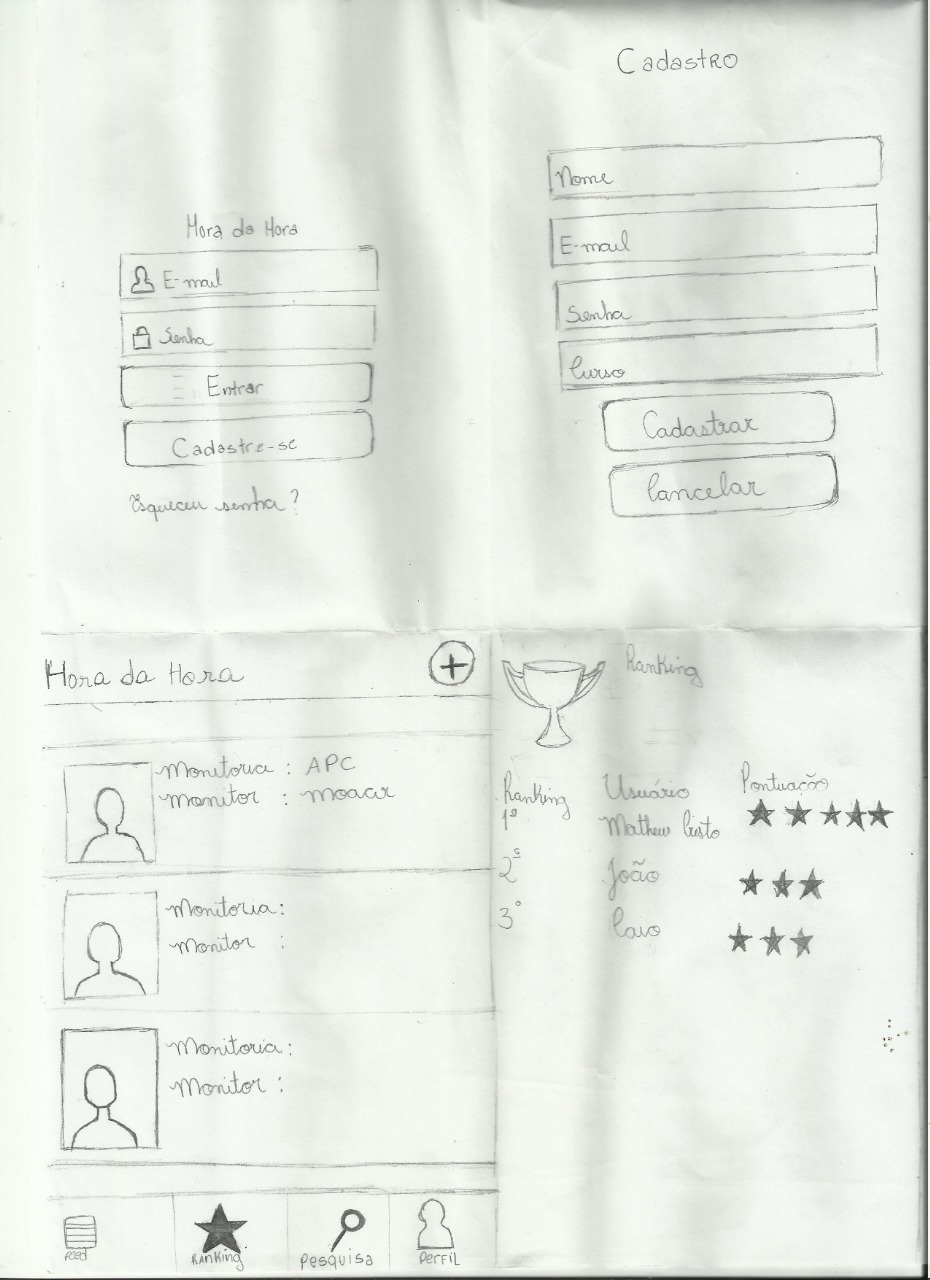 Hora da Hora
E-mail
Senha
Entrar
Cadastre-se
Esqueceu senha?
Cadastro
Nome
E-mail
Senha
Curso
Cadastrar
Cancelar
Hora da Hora
Monitoria : APC
Monitor : moacir
Monitoria:
Monitor :
Monitoria:
Monitor :
Feed
Ranking
Pesquisa
Perfil
Ranking
Ranking Usuário Pontuação
1º Matheus Cristo
2º João
3º Caio